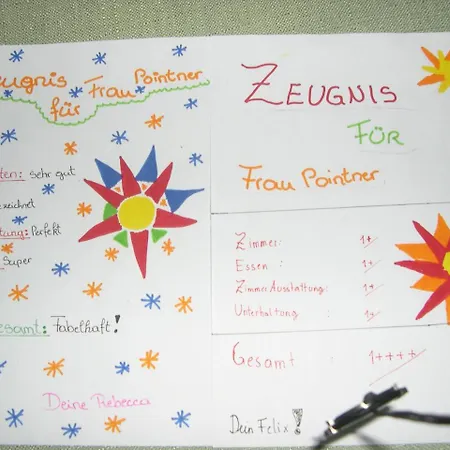 Zeugnis
für Frau Pointner
sehr gut
Perfekt
Super
Gesamt: Fabelhaft!
Deine Rebecca
ZEUGNIS
FÜR
Frau Pointner
Zimmer: 1+
Essen: 1+
Zimmer Ausstattung: 1+
Unterhaltung : 1+
Gesamt : 1++++
Dein Felix!